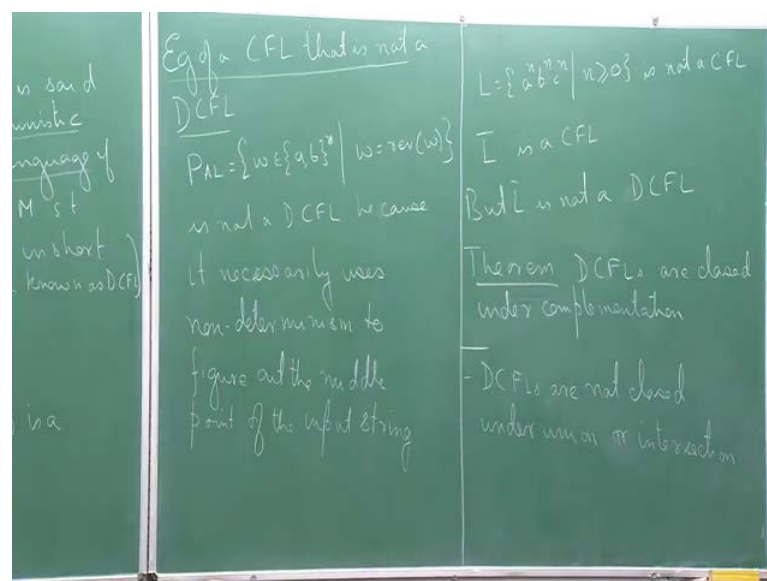 is said
unistic
nguage if
M st
in short
known as DCFL)
is a
Eg of a CFL that is not a
DCFL
PAL = {w ∈ {a,b}* | w = rev(w)}
is not a DCFL because
it necessarily uses
non-determinism to
figure out the middle
point of the input string
L = {aⁿbⁿcⁿ | n ≥ 0} is not a CFL
L̅ is a CFL
But L̅ is not a DCFL
Theorem DCFLs are closed
under complementation
- DCFLs are not closed
under union or intersection